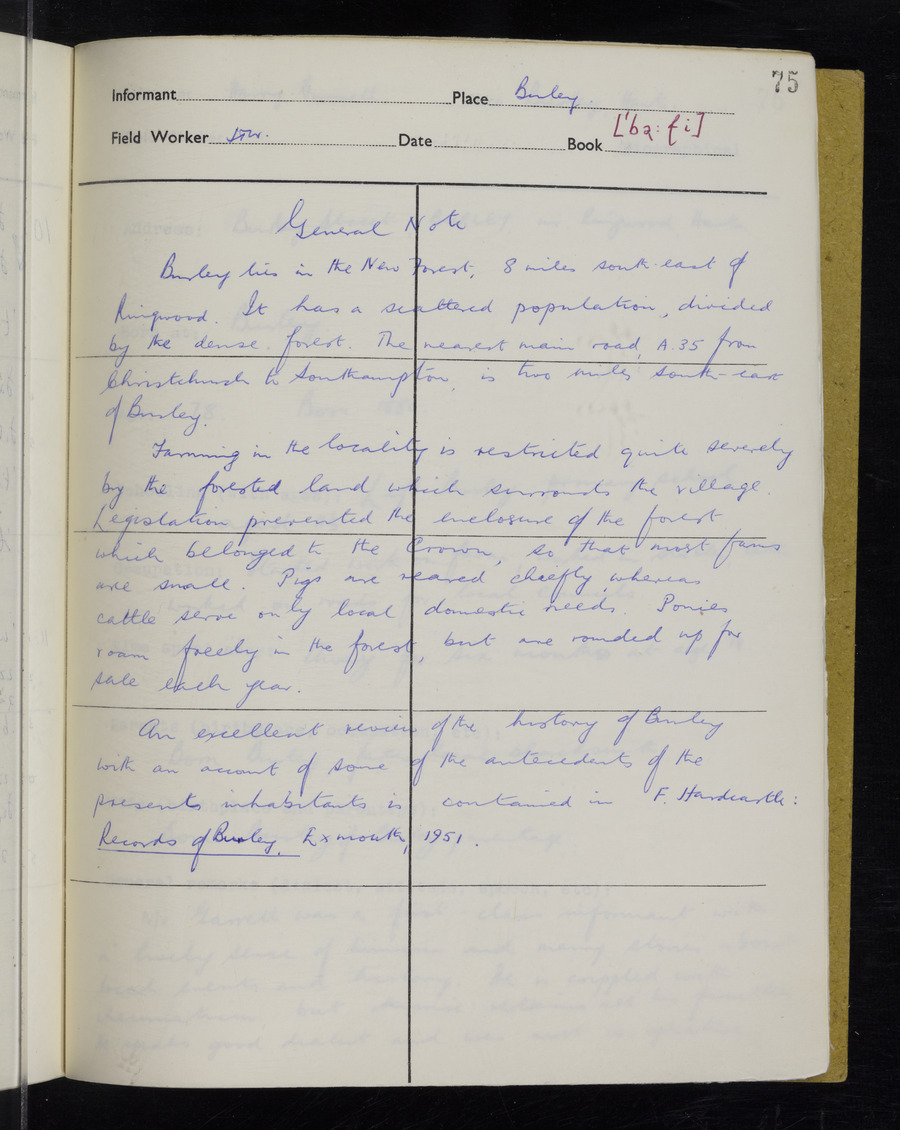 75
Informant Place Burley
['bɜ:ɭi]
Field Worker JTW. Date Book
General Note
Burley lies in the New Forest, 8 miles south-east of
Ringwood. It has a scattered population, divided
by the dense forest. The nearest main road, A.35 from
Christchurch to Southampton, is two miles south-east
of Burley.
Farming in the locality is restricted quite severely
by the forested land which surrounds the village.
Legislation prevented the enclosure of the forest
which belonged to the Crown, so that most farms
are small. Pigs are reared chiefly, whereas
cattle serve only local domestic needs. Ponies
roam freely in the forest, but are rounded up for
sale each year.
An excellent review of the history of Burley
with an account of some of the antecedents of the
presents inhabitants is contained in F. Hardcastle:
Records of Burley, Exmouth, 1951.